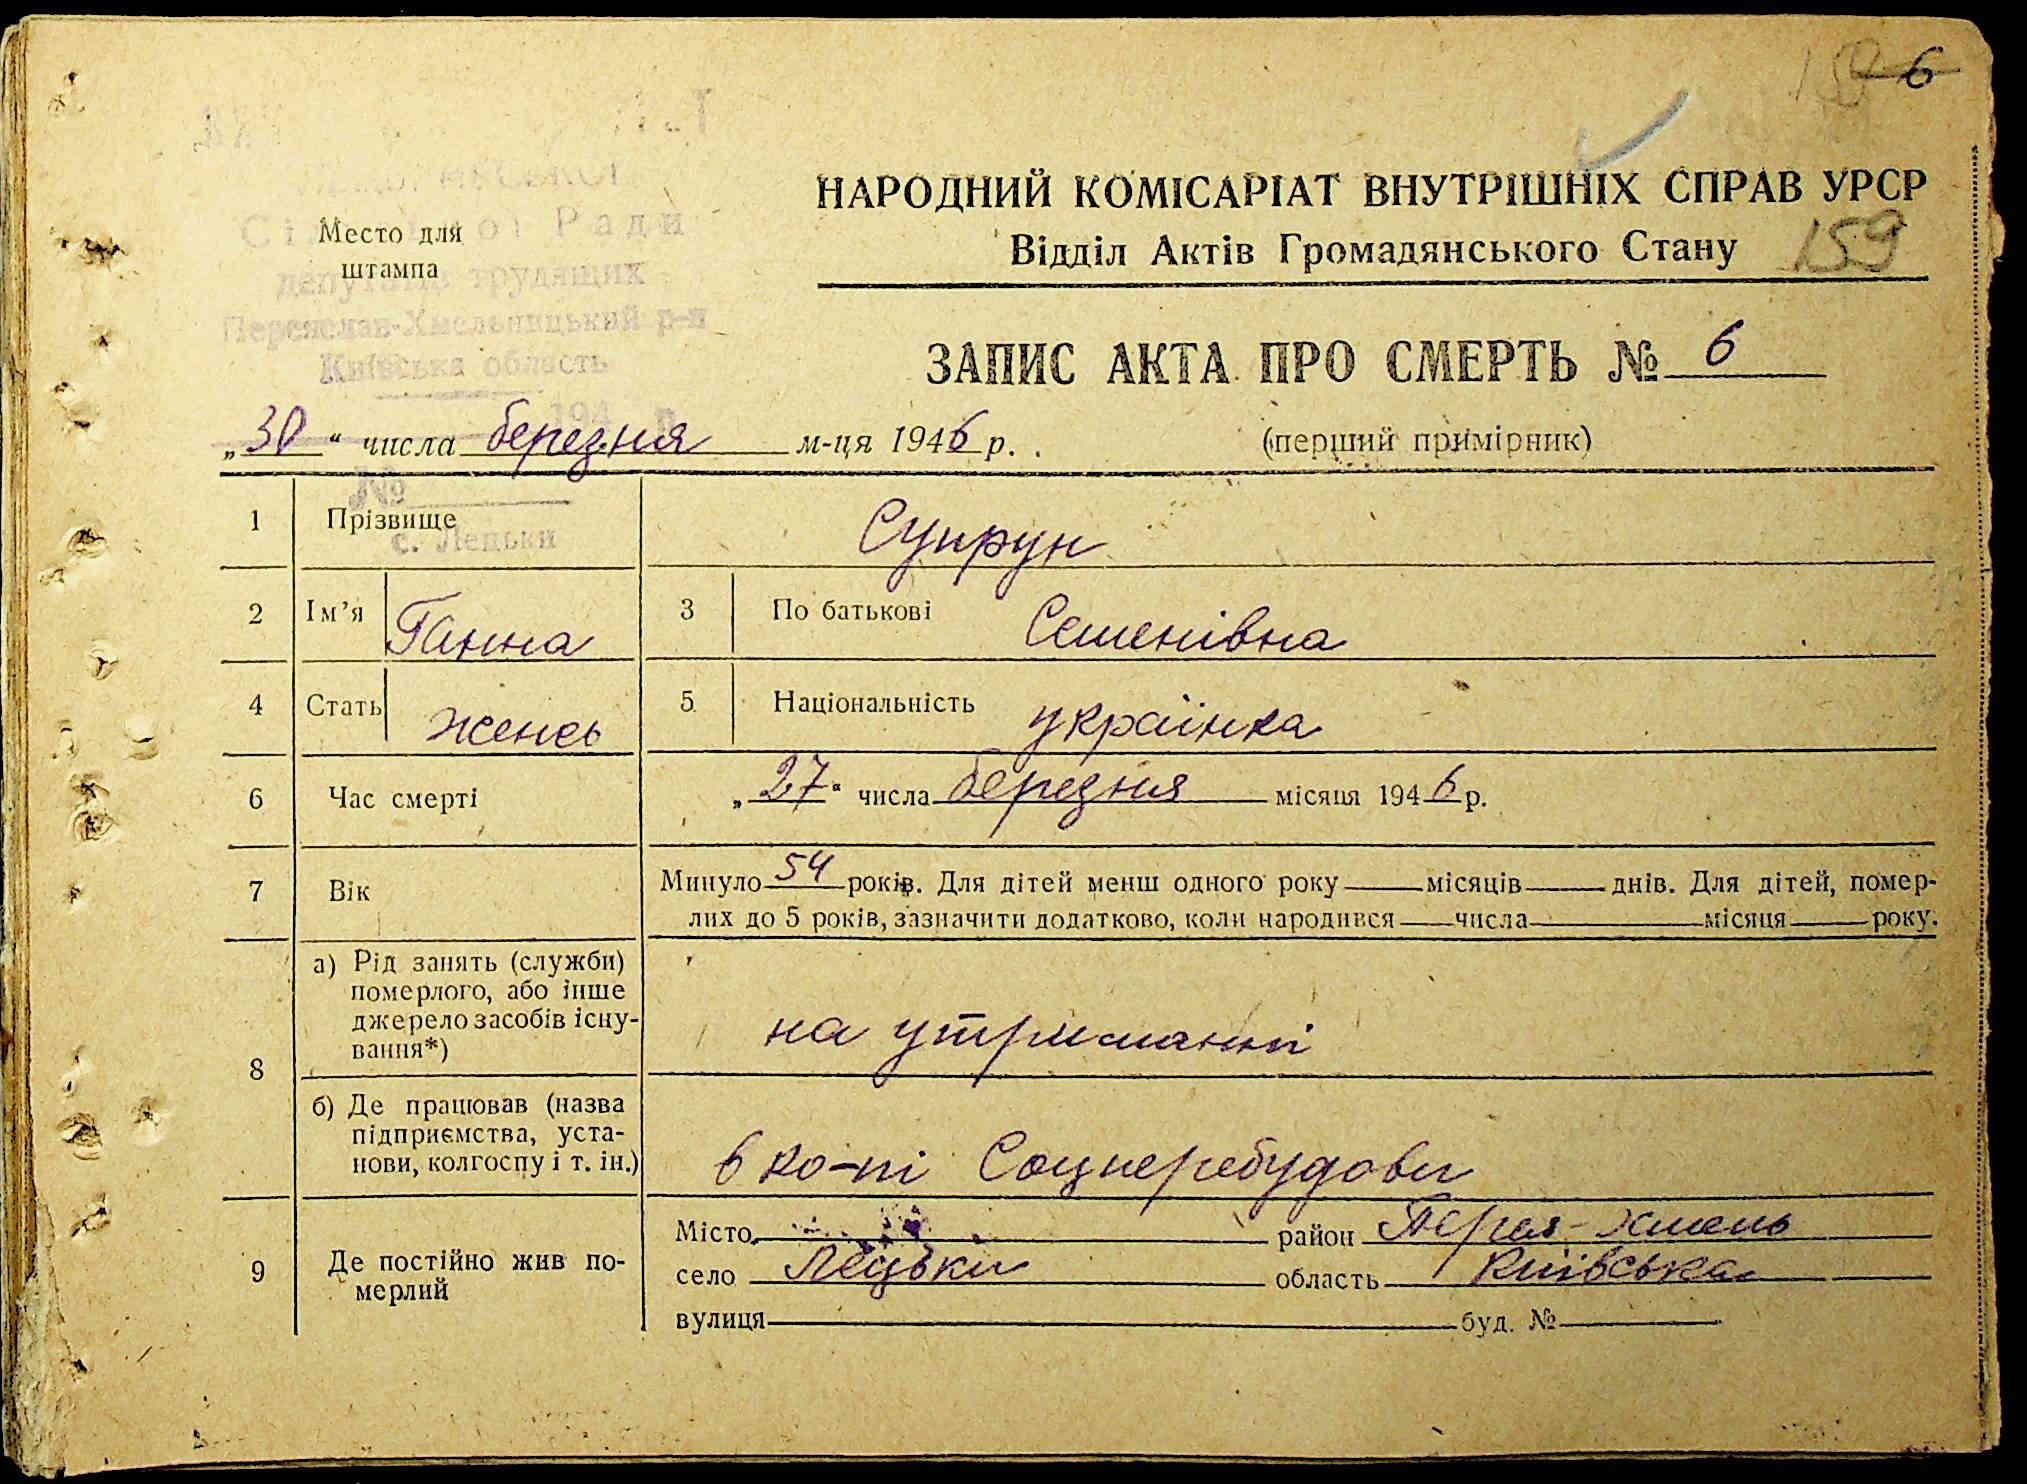 6
159
НАРОДНИЙ КОМІСАРІАТ ВНУТРІШНІХ СПРАВ УРСР
Відділ Актів Громадянського Стану
Место для
штампа
Ради
депутатів трудящих
Переяслав-Хмельницький р-н
Київська область
194 р.
№
с. Лецьки
ЗАПИС АКТА ПРО СМЕРТЬ № 6
„30“ числа березня м-ця 1946 р.
(перший примірник)
1 Прізвище Супрун
2 Ім’я Ганна 3 По батькові Семенівна
4 Стать женсь 5 Національність українка
6 Час смерті „27“ числа березня місяця 1946 р.
7 Вік Минуло 54 років. Для дітей менш одного року місяців днів. Для дітей, помер-
лих до 5 років, зазначити додатково, коли народився числа місяця року.
8 а) Рід занять (служби)
померлого, або інше
джерело засобів існу-
вання*)
на утриманні
б) Де працював (назва
підприємства, уста-
нови, колгоспу і т. ін.)
в ко-пі Соцперебудови
9 Де постійно жив по-
мерлий
Місто район Перея-Хмень
село Лецьки область Київська
вулиця буд. №